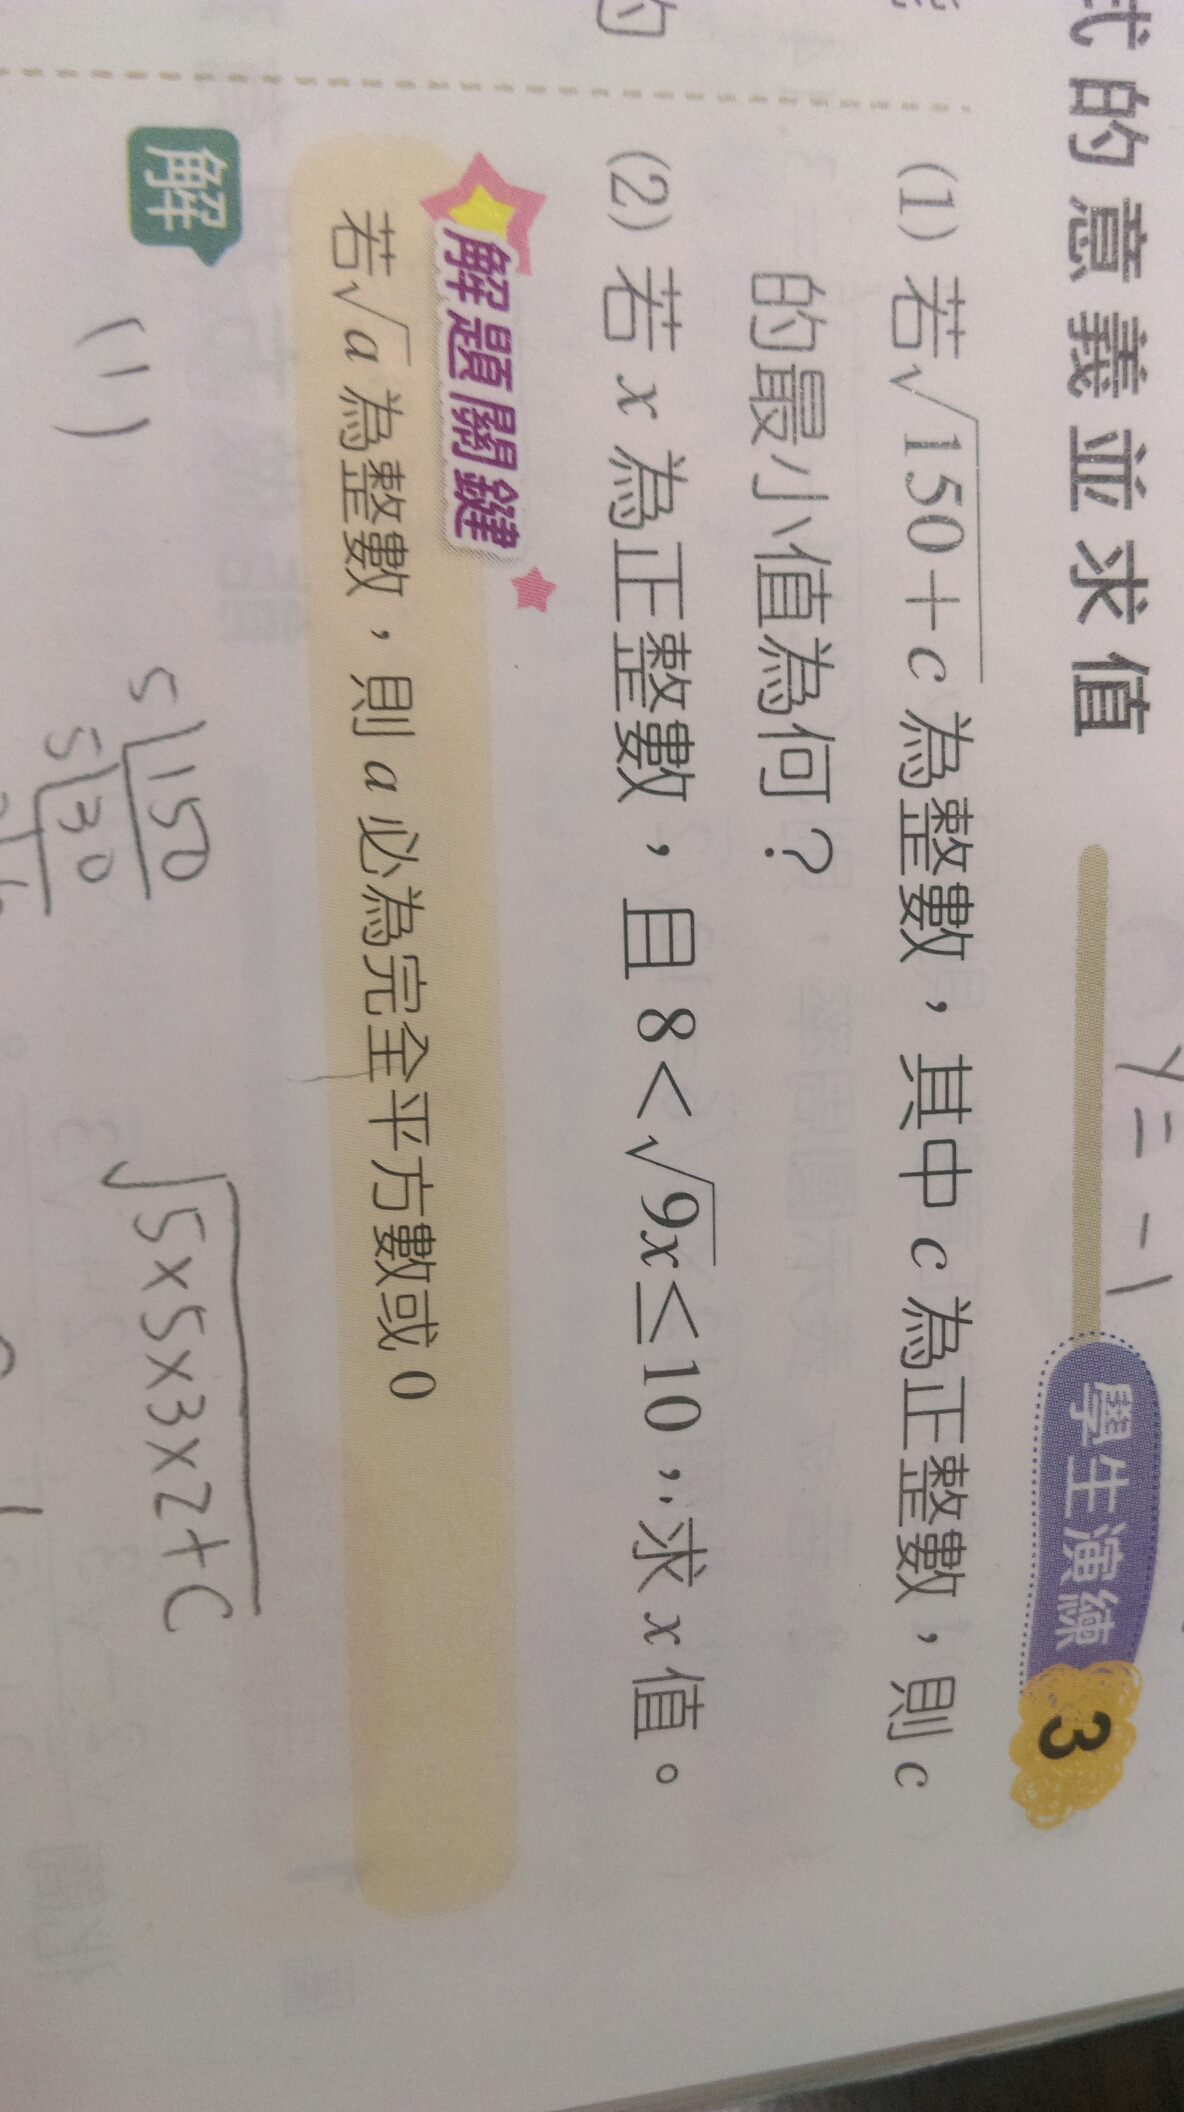 式的意義並求值
學生演練 3
y = -1
(1) 若√150+c 為整數，其中 c 為正整數，則 c
的最小值為何？
(2) 若 x 為正整數，且 8<√9x≤10，求 x 值。
的
解題關鍵
若√a 為整數，則 a 必為完全平方數或 0
解
(1)
5 150
5 30
√5×5×3×2+C